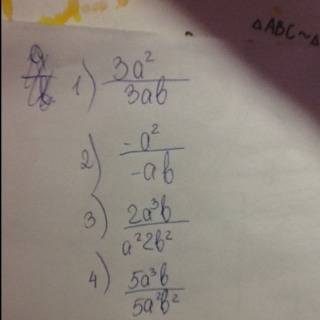 △ABC~△
1) 3a²/3ab
2) -a²/-ab
3) 2a³b/a²2b²
4) 5a³b/5a²b²